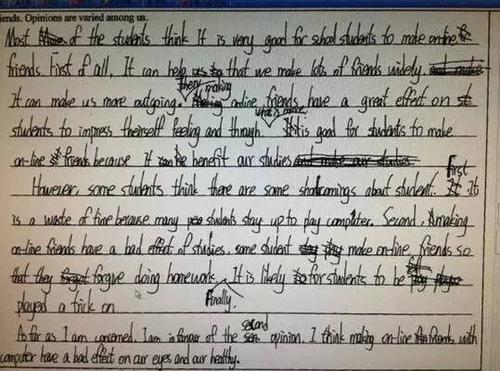 iends. Opinions are varied among us.
Most of the students think It is very good for school students to make online
friends. First of all, It can help that we make lots of friends widely
It can make us more outgoing. Then, making online friends have a great effect on
students to impress theirself feeling and through. what is more It is good for students to make
on-line friends because it can benefit our studies
However, some students think there are some shortcomings about student. First It
is a waste of time because many students stay up to play computer. Second. making
on-line friends have a bad effect of studies. some student make on-line friends so
that they forgive doing homework. Finally. It is likely for students to be
played a trick on
As far as I am concerned. I am in favour of the second opinion. I think making on-line friends with
computer have a bad effect on our eyes and our healthy.